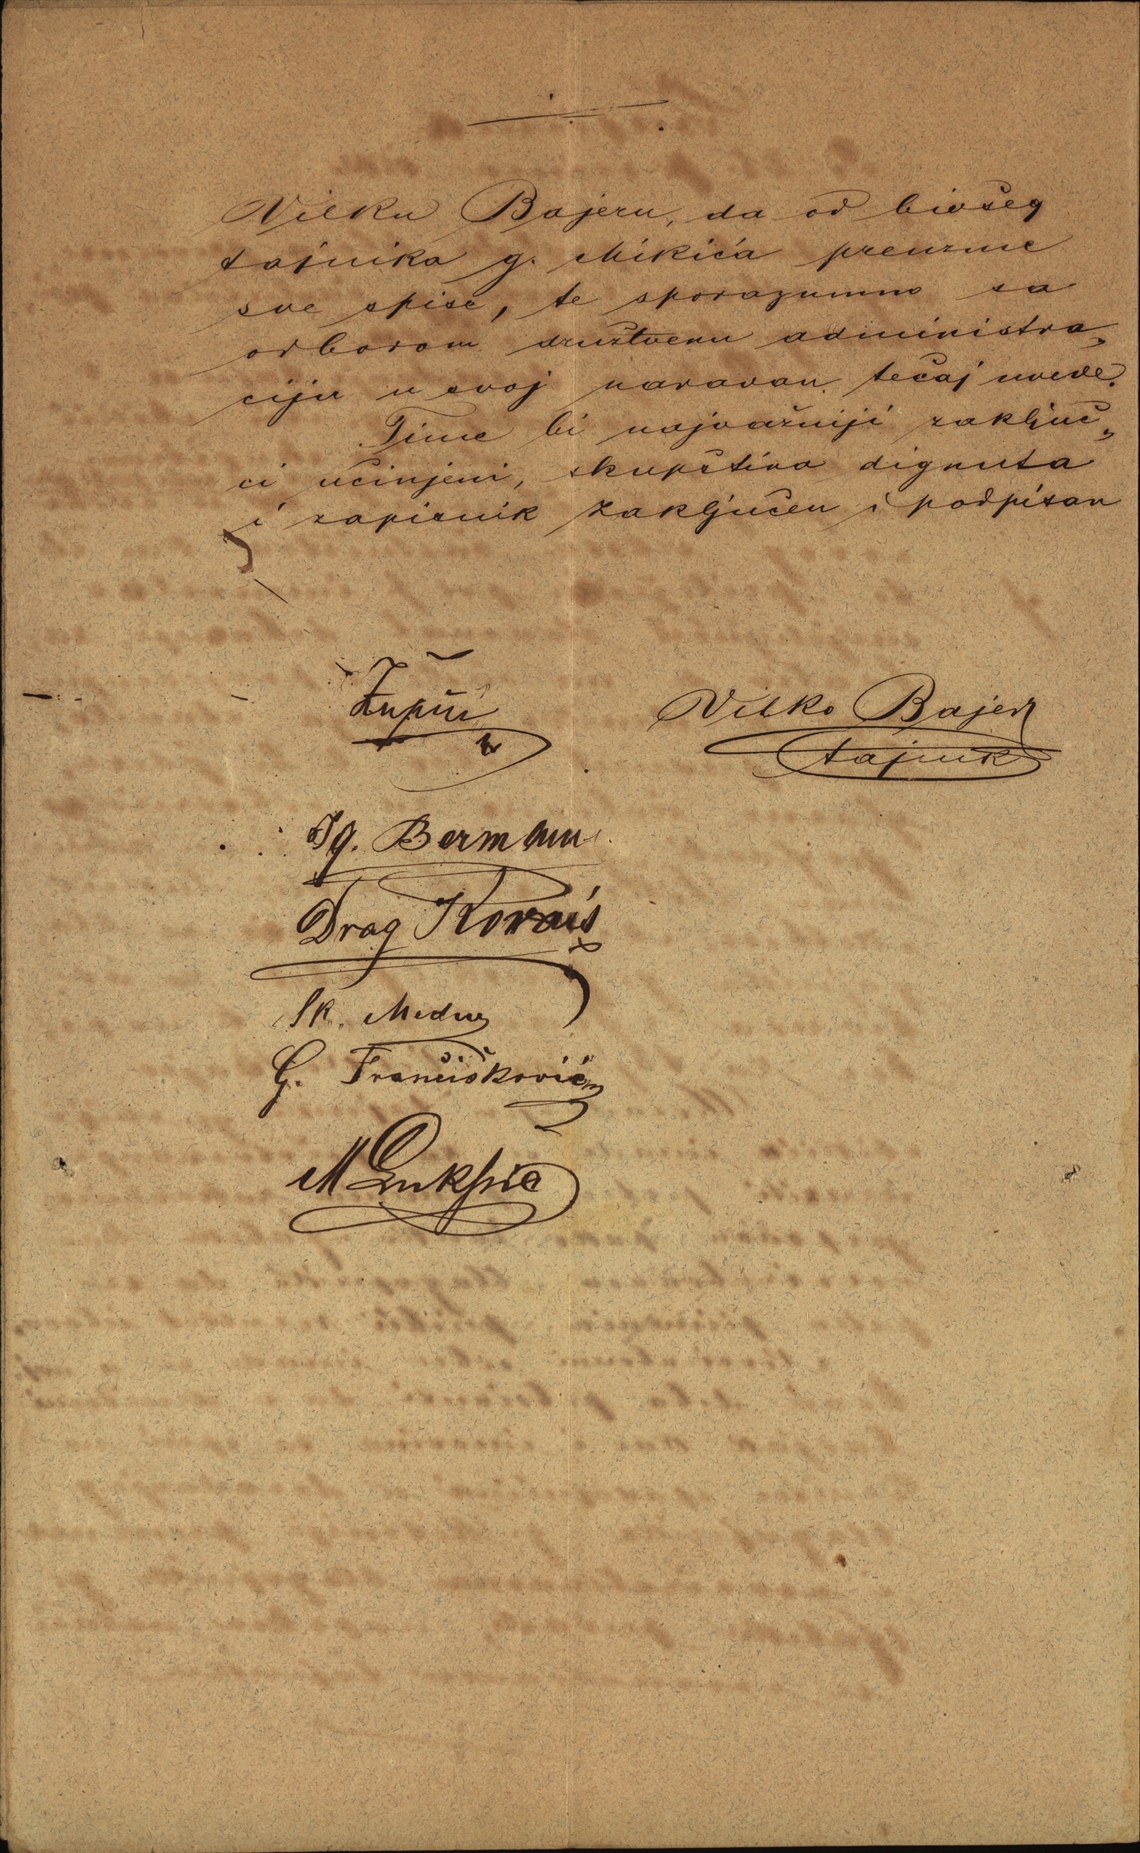 Vilku Bajeru, da od bivšeg
tajnika g. Mikića preuzme
sve spise, te sporazumno sa
odborom družtvenu administra„
ciju u svoj naravan tečaj uvede.
Time bi najvažniji zaključ„
ci učinjeni, skupština dignuta
i zapisnik zaključen i podpisan
Vilko Bajer
tajnik
Ig. Bermann
Drag Kovačić
G. Franćišković
M Lukšić